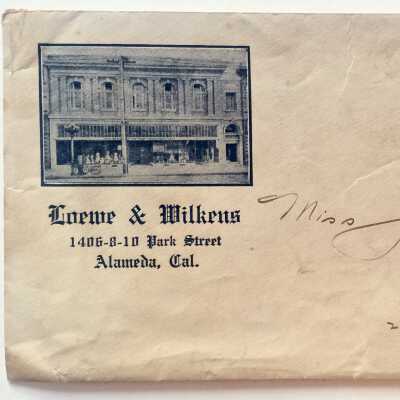 Loewe & Wilkens
1406-8-10 Park Street
Alameda, Cal.
Miss
2